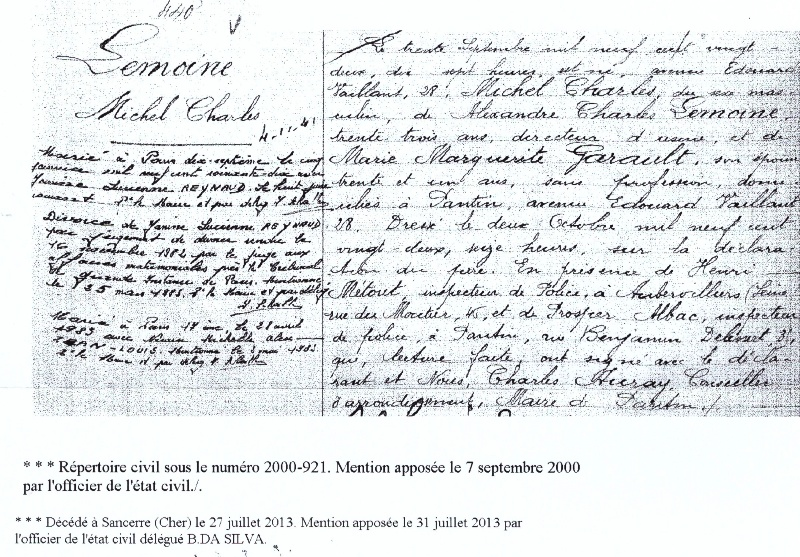 440
Lemoine
Michel Charles
4-11-41
Marié à Paris dix-septième le cinq
janvier mil neuf cent soixante-dix
Janine Lucienne REYNAUD. Le huit
Divorcé de Janine Lucienne REYNAUD
par jugement de divorce rendu le
16 novembre 1982 par le juge aux
affaires matrimoniales près le Tribunal
de Grande Instance de Paris. Mentionné
le 25 mars 1983. Pr le Maire et par délég
Marié à Paris 17 ème, le 21 avril
1983 avec
JEAN-LOUIS. Mentionné le 2 mai 1983
Pr le Maire et par délég
Le trente Septembre mil neuf cent vingt-
deux, dix sept heures, est né, avenue Edouard
Vaillant, 28, Michel Charles, du sexe mas-
culin, de Alexandre Charles Lemoine,
trente trois ans, directeur d'usine, et de
Marie Marguerite Garault, son épouse
trente et un ans, sans profession, domi-
ciliés à Pantin, avenue Edouard Vaillant
28. Dressé le deux Octobre mil neuf cent
vingt-deux, seize heures, sur la déclara-
tion du père. En présence de Henri
Métoret, inspecteur de Police, à Aubervilliers (Seine
rue du Moutier, 45, et de Prosper Albac, inspecteur
de police, à Pantin, rue Benjamin Delessert 3,
qui, lecture faite, ont signé avec le décla-
rant et Nous, Charles Auray, Conseiller
d'arrondissement, Maire de Pantin ./.
* * * Répertoire civil sous le numéro 2000-921. Mention apposée le 7 septembre 2000
par l'officier de l'état civil./.
* * * Décédé à Sancerre (Cher) le 27 juillet 2013. Mention apposée le 31 juillet 2013 par
l'officier de l'état civil délégué B.DA SILVA.